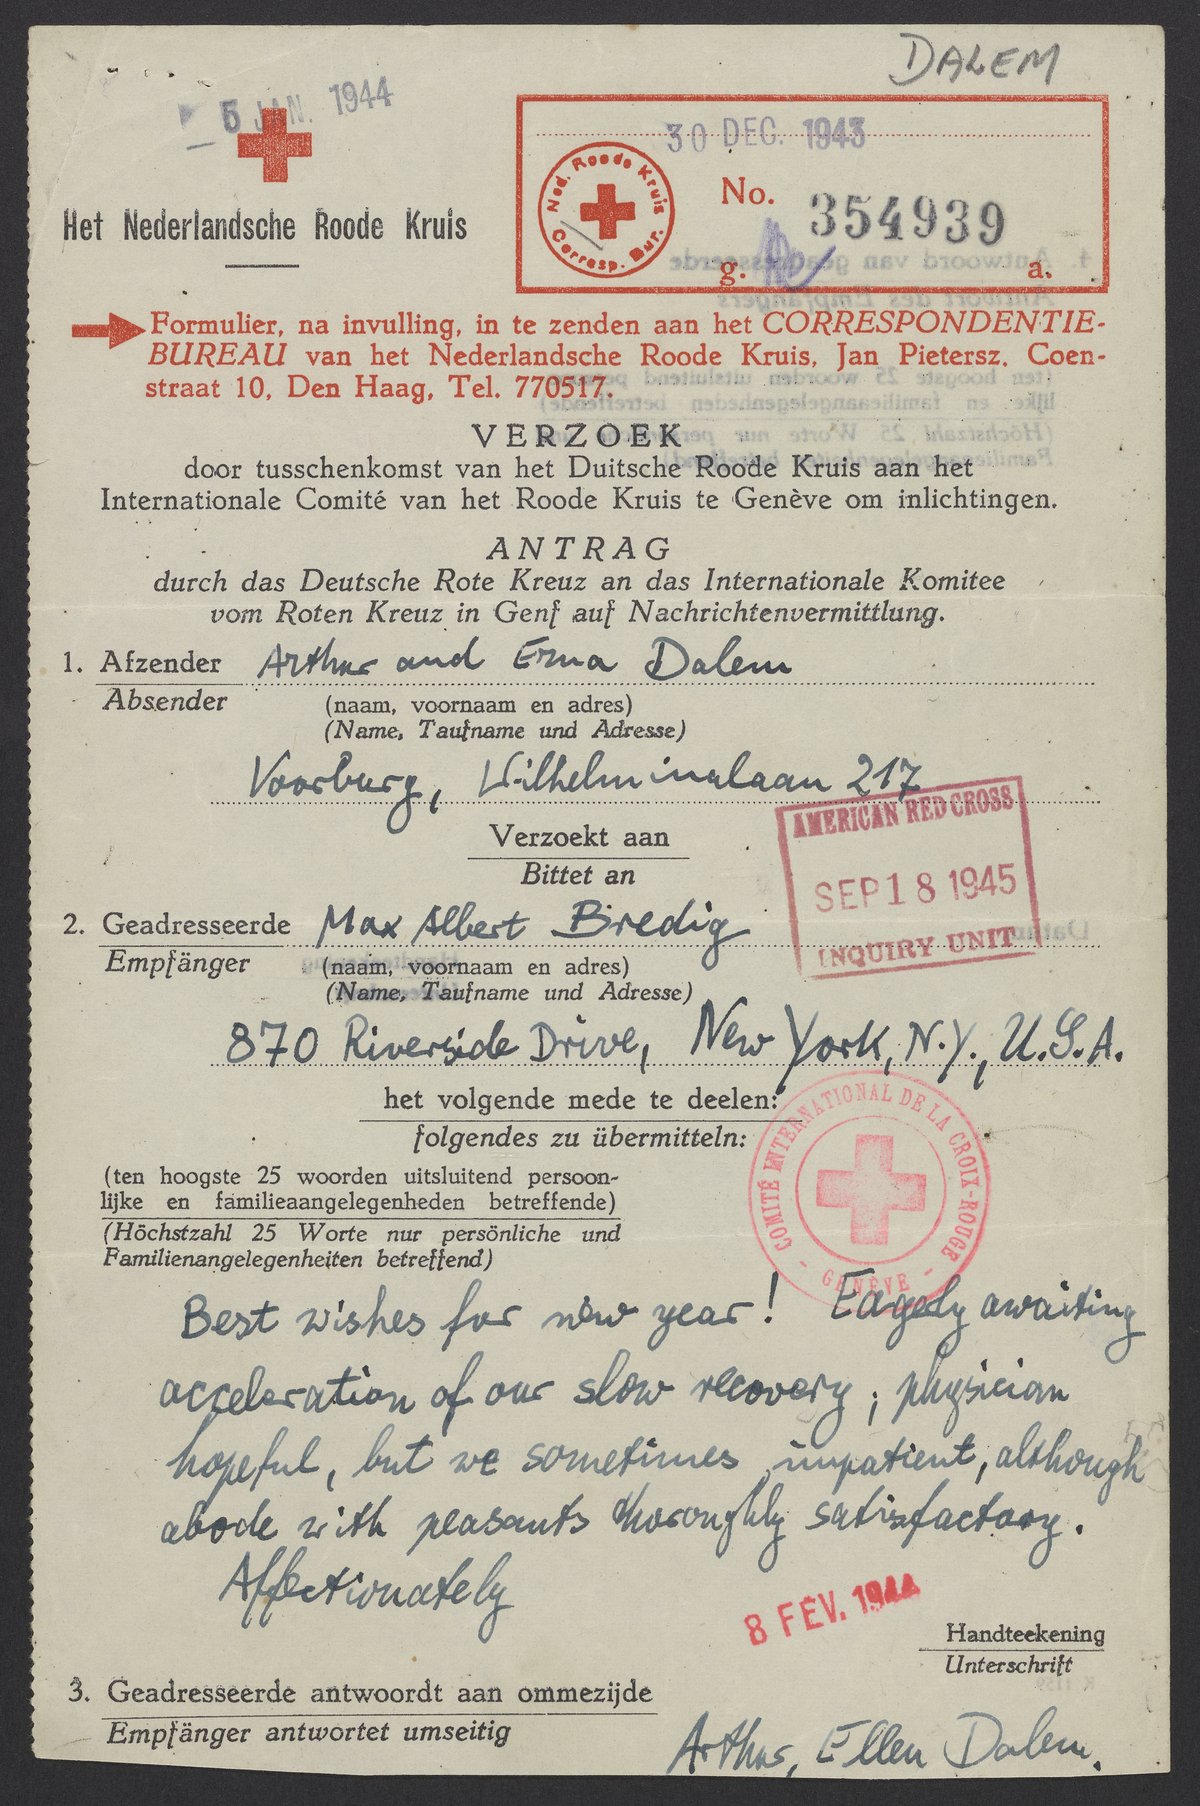 DALEM
5 JAN. 1944
30 DEC. 1943
Ned. Roode Kruis
Corresp. Bur.
No. 354939
g. a.
Het Nederlandsche Roode Kruis
Formulier, na invulling, in te zenden aan het CORRESPONDENTIE-
BUREAU van het Nederlandsche Roode Kruis, Jan Pietersz. Coen-
straat 10, Den Haag, Tel. 770517.
VERZOEK
door tusschenkomst van het Duitsche Roode Kruis aan het
Internationale Comité van het Roode Kruis te Genève om inlichtingen.
ANTRAG
durch das Deutsche Rote Kreuz an das Internationale Komitee
vom Roten Kreuz in Genf auf Nachrichtenvermittlung.
1. Afzender Arthur and Erna Dalem
Absender (naam, voornaam en adres)
(Name, Taufname und Adresse)
Voorburg, Wilhelminalaan 217
Verzoekt aan
Bittet an
AMERICAN RED CROSS
SEP 18 1945
INQUIRY UNIT
2. Geadresseerde Max Albert Bredig
Empfänger (naam, voornaam en adres)
(Name, Taufname und Adresse)
870 Riverside Drive, New York, N.Y., U.S.A.
het volgende mede te deelen:
folgendes zu übermitteln:
COMITÉ INTERNATIONAL DE LA CROIX-ROUGE
- GENÈVE -
(ten hoogste 25 woorden uitsluitend persoon-
lijke en familieaangelegenheden betreffende)
(Höchstzahl 25 Worte nur persönliche und
Familienangelegenheiten betreffend)
Best wishes for new year! Eagerly awaiting
acceleration of our slow recovery; physician
hopeful, but we sometimes impatient, although
abode with peasants thoroughly satisfactory.
Affectionately
8 FEV. 1944
Handteekening
Unterschrift
3. Geadresseerde antwoordt aan ommezijde
Empfänger antwortet umseitig
Arthur, Ellen Dalem.